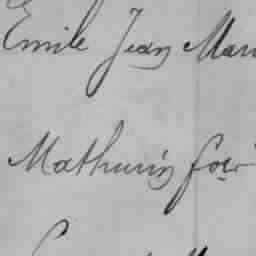 Emile Jean Mari
Mathurin